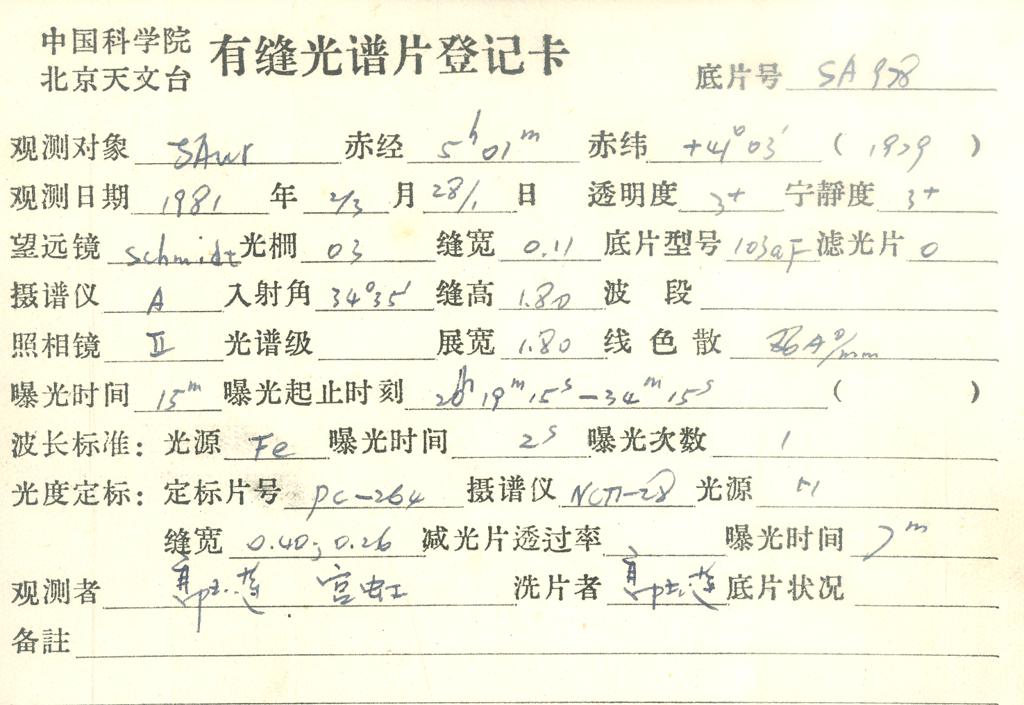 中国科学院 有缝光谱片登记卡
北京天文台 底片号 SA 978
观测对象 SAur 赤经 5h01m 赤纬 +41°03′ ( 1979 )
观测日期 1981 年 2/3 月 28/1 日 透明度 3+ 宁静度 3+
望远镜 Schmidt 光栅 03 缝宽 0.11 底片型号 103aF 滤光片 0
摄谱仪 A 入射角 34°35′ 缝高 1.80 波 段
照相镜 II 光谱级 展宽 1.80 线 色 散 A°/mm
曝光时间 15m 曝光起止时刻 20h19m15s—34m15s ( )
波长标准: 光源 Fe 曝光时间 2s 曝光次数 1
光度定标: 定标片号 PC-264 摄谱仪 ИСП-28 光源
缝宽 0.40; 0.26 减光片透过率 曝光时间 7m
观测者 宫虹 洗片者 底片状况
备註